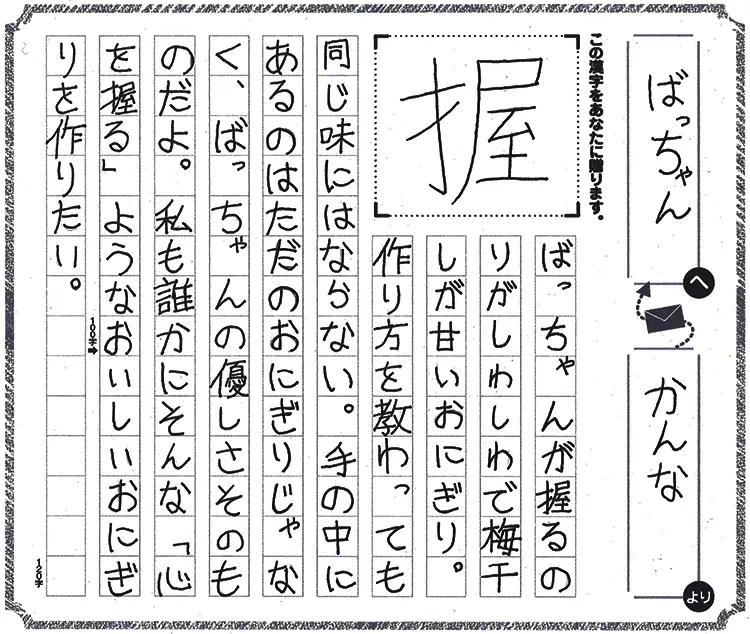 ばっちゃん
へ
かんな
より
この漢字をあなたに贈ります。
握
ばっちゃんが握るの
りがしわしわで梅干
しが甘いおにぎり。
作り方を教わっても
同じ味にはならない。手の中に
あるのはただのおにぎりじゃな
く、ばっちゃんの優しさそのも
のだよ。私も誰かにそんな「心
を握る」ようなおいしいおにぎ
100字➡
りを作りたい。
120字